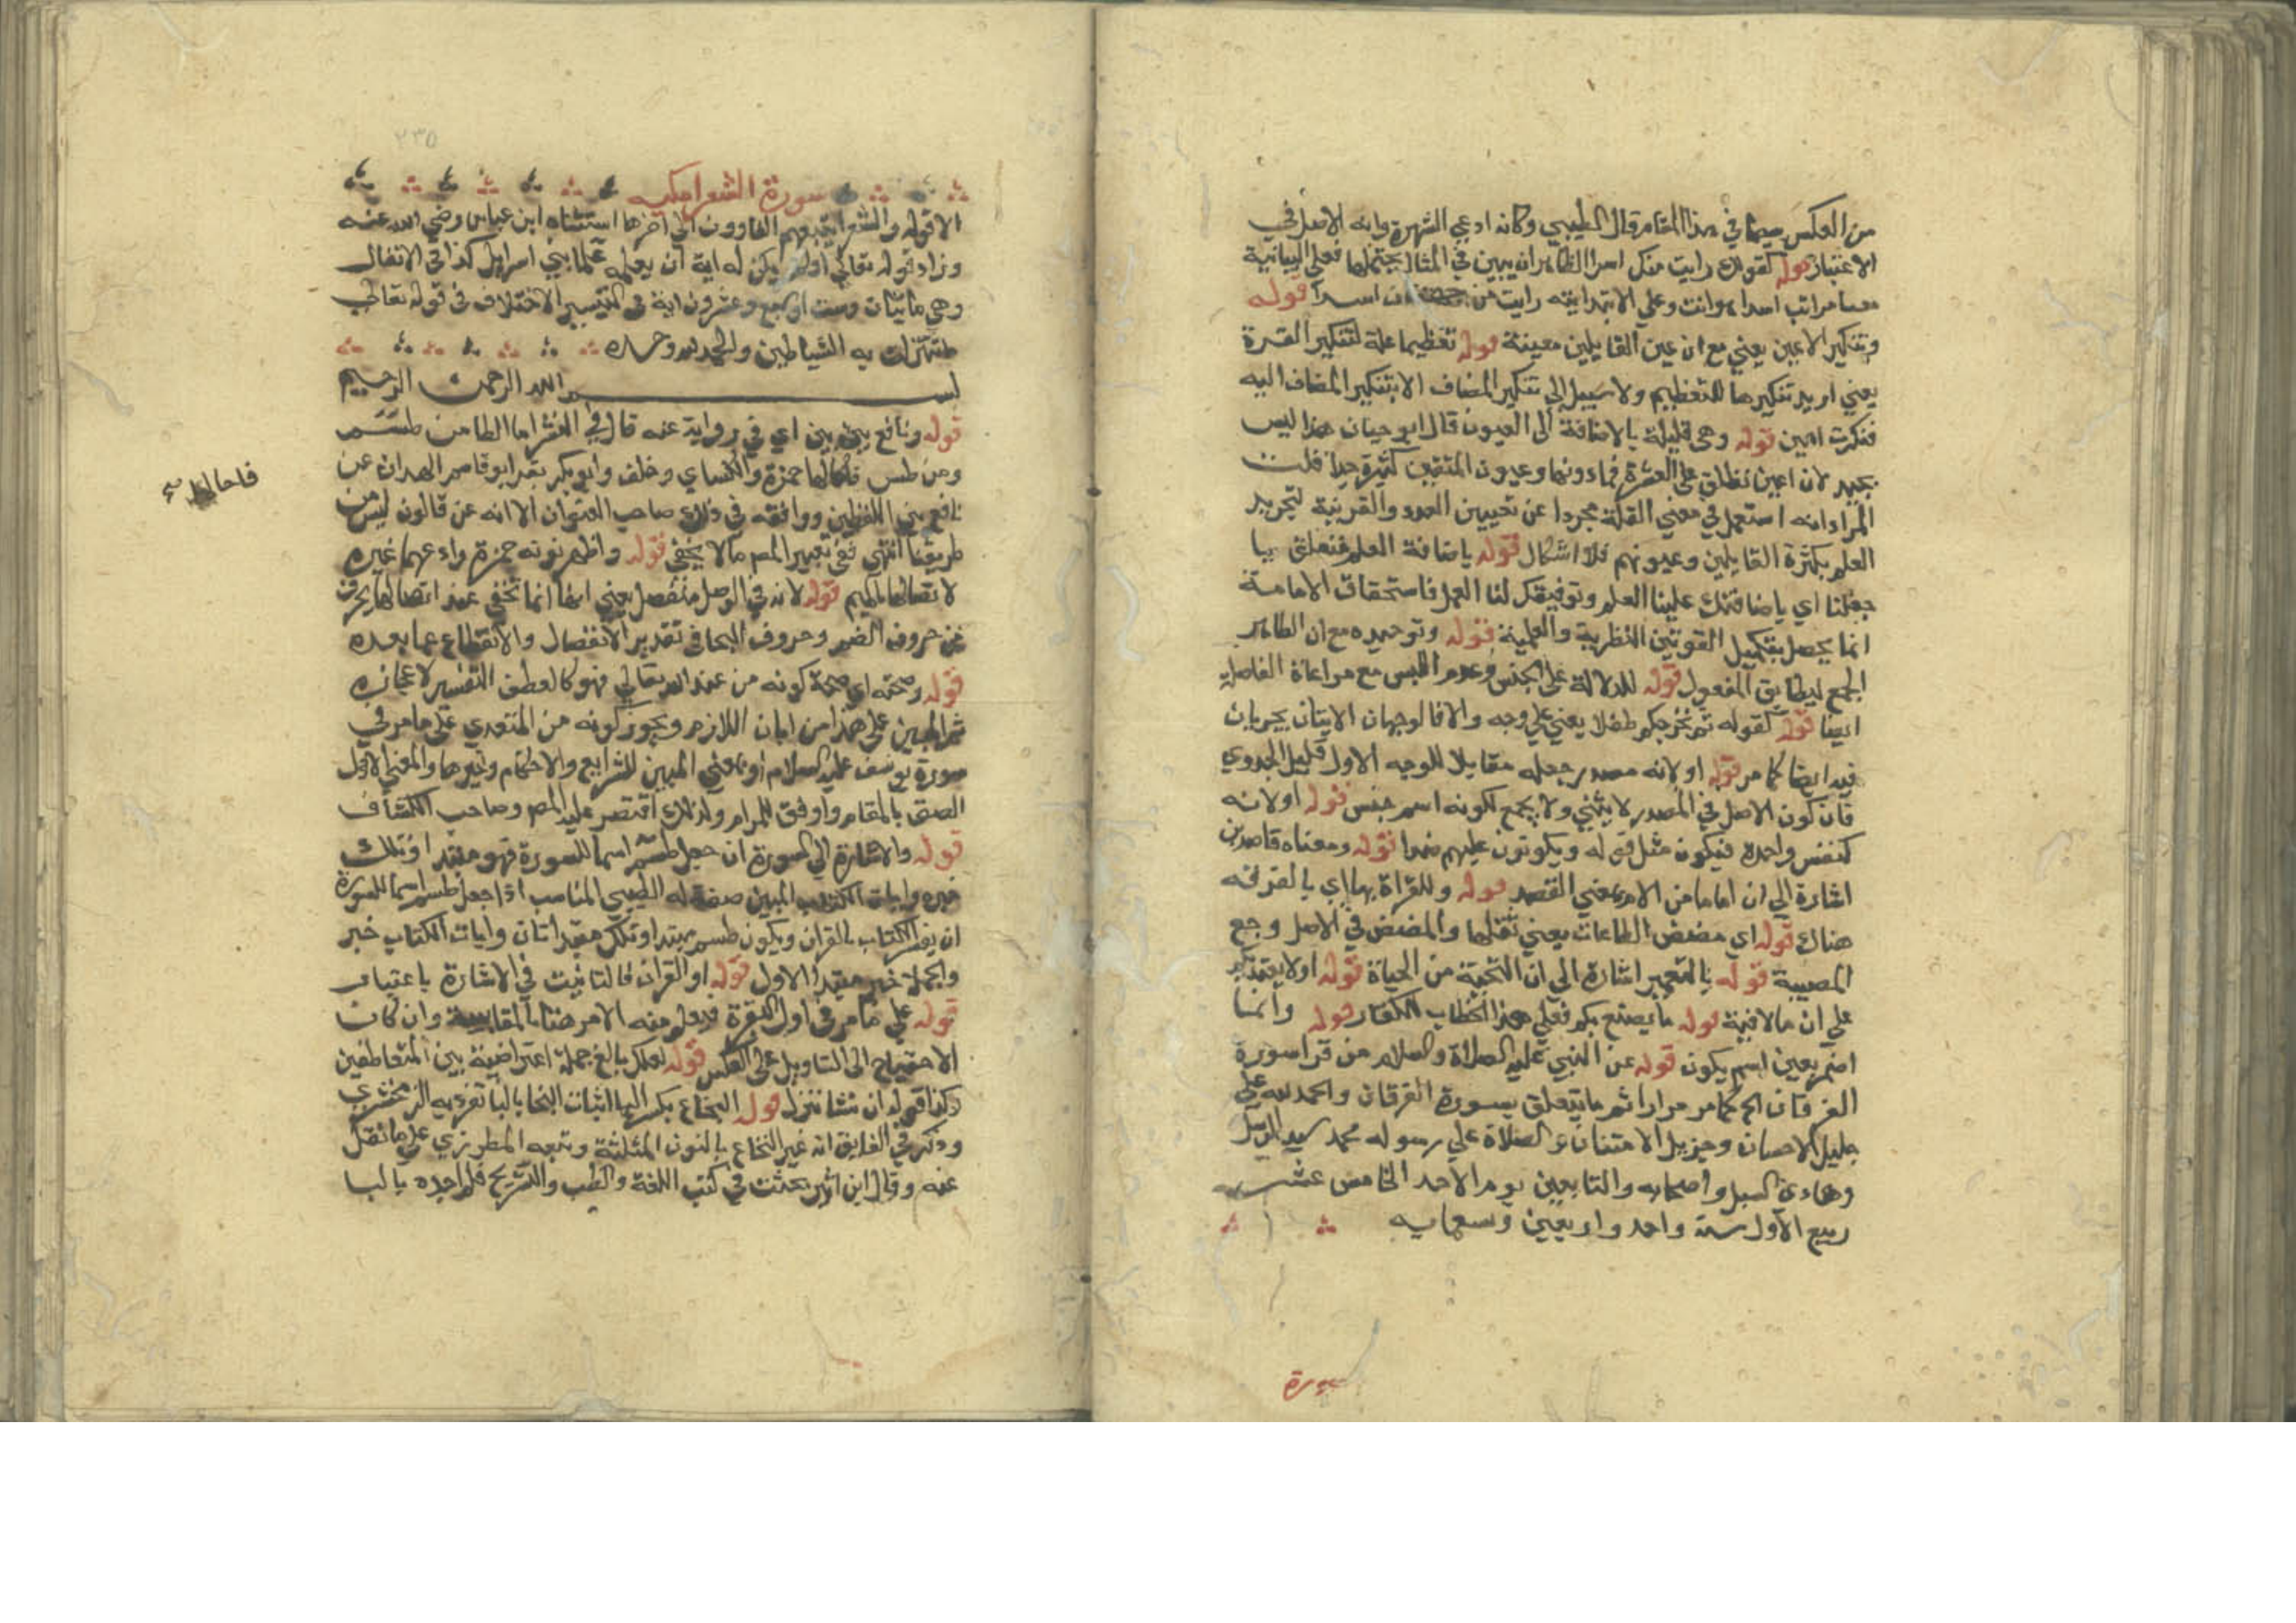 من العكس سيما في هذا المقام قال الطيبي وكانه ادعي الشهرة وانه الاصل في
الاعتبار قوله كقولك رايت منك اسدا الظاهر ان يبين في المثال يحتملها فعلي البيانية
اسدا هو انت وعلي الابتدايية رايت من اسدا قوله
وتنكير الاعين يعني مع ان عين القايلين معينة قوله تعظيما علة لتنكير القرة
يعني اريد تنكيرها للتعظيم ولا سبيل الي تنكير المضاف الا بتنكير المضاف اليه
فنكرت اعين قوله وهي قليلة بالاضافة الي العيون قال ابو حيان هذا ليس
بجيد لان اعين تطلق علي العشرة فما دونها وعيون المتقين كثيرة جدا قلت
المراد انه استعمل في معني القلة مجردا عن تعيين العدد والقرينة لتجريد
العلم بكثرة القايلين وعيونهم فلا اشكال قوله باضافة العلم فتعلق بيا
جعلنا اي باضافتك علينا العلم وتوفيقك لنا العمل فاستحقاق الامامة
انما يحصل بتكميل القوتين النظرية والعملية قوله وتوحيده مع ان الظاهر
الجمع ليطابق المفعول قوله للدلالة علي الجنس وعدم اللبس مع مراعاة الفاصلة
ايضا قوله كقوله ثم نخرجكم طفلا يعني علي وجه والا فالوجهان الاتيان يجريان
فيه ايضا كما مر قوله او لانه مصدر جعله مقابلا للوجه الاول قليل الجدوي
فان كون الاصل في المصدر لا يثني ولا يجمع لكونه اسم جنس قوله او لانه
كنفس واحدة فيكون مثل قوله ويكونون عليهم ضدا قوله ومعناه قاصدين
اشارة الي ان اماما من الام بمعني القصد قوله وللقراة بها اي بالغرفة
هناك قوله اي مضض الطاعات يعني ثقلها والمضض في الاصل وجع
المصيبة قوله بالتعمير اشارة الي ان التحية من الحياة قوله او لا يعتد بكم
علي ان ما نافية قوله ما يصنع بكم فعلي هذا الخطاب للكفار قوله وانما
اضمر يعني اسم يكون قوله عن النبي عليه الصلاة والسلام من قرا سورة
الفرقان الخ كما مر مرارا ثم ما يتعلق بسورة الفرقان والحمد لله علي
جليل الاحسان وجزيل الامتنان والصلاة علي رسوله محمد سيد الرسل
وهادي السبل واصحابه والتابعين يوم الاحد الخامس عشر
ربيع الاول سنة واحد واربعين وتسعمايه
سورة
٢٣٥
سورة الشعرا مكيه
الا قوله والشعرا يتبعهم الغاوون الي اخرها استثناه ابن عباس رضي الله عنه
وزاد قوله تعالي اولم يكن لهم اية ان يعلمه علما بني اسرايل كذا في الاتقان
وهي مايتان وست او سبع وعشرون اية في التيسير الاختلاف في قوله تعالي
ما تنزلت به الشياطين والحمد لله وحده
بسم الله الرحمن الرحيم
قوله ونافع بين بين اي في رواية عنه قال في النشر اما الطا من طسم
ومن طس فامالها حمزة والكساي وخلف وابو بكر ابو قاسم الهذلي عن
نافع بين اللفظين ووافقه في ذلك صاحب العنوان الا انه عن قالون ليس من
طريقنا انتهي ففي تعبير المص ما لا يخفي قوله واظهر نونه حمزة وادغمها غيره
لاتصالها بالميم قوله لانه في الوصل منفصل يعني انها انما تخفي عند اتصالها بحرف
من حروف الفم وحروف الهجا في تقدير الانفصال والانقطاع عما بعده
قوله وصحته اي صحة كونه من عند الله تعالي فهو كالعطف التفسير لاعجازه
ثم المبين علي هذا من ابان اللازم ويجوز كونه من المتعدي علي ما مر في
سورة يوسف عليه السلام او بمعني المبين للشرايع والاحكام وغيرها والمعني الاول
الصق بالمقام واوفق للمرام ولذلك اقتصر عليه المص وصاحب الكشاف
قوله والاشارة الي السورة ان جعل طسم اسما للسورة فهو مبتدا وتلك
خبره وايات الكتاب المبين صفة له الطيبي المناسب اذا جعل طسم اسما للسورة
ان يفسر الكتاب بالقران ويكون طسم مبتدا وتلك مبتدا ثان وايات الكتاب خبر
والجملة خبر مبتدا الاول قوله او القران فالتانيث في الاشارة باعتبار
قوله علي ما مر في اول البقرة فيعلم منه الامر هنا بالمقايسة وان كان
الاحتياج الي التاويل علي العكس قوله لعلك باخع جملة اعتراضية بين المتعاطفين
وكذا قوله ان نشا ننزل قوله البخاع بكسر البا اثبات البخاع بالبا تفرد به الزمخشري
وذكر في الفايق انه غير النخاع بالنون المثلثة وتبعه المطرزي علي ما نقل
عنه وقال ابن اثير بحثت في كتب اللغة والطب والتشريح فلم اجده بالبا
فامالها